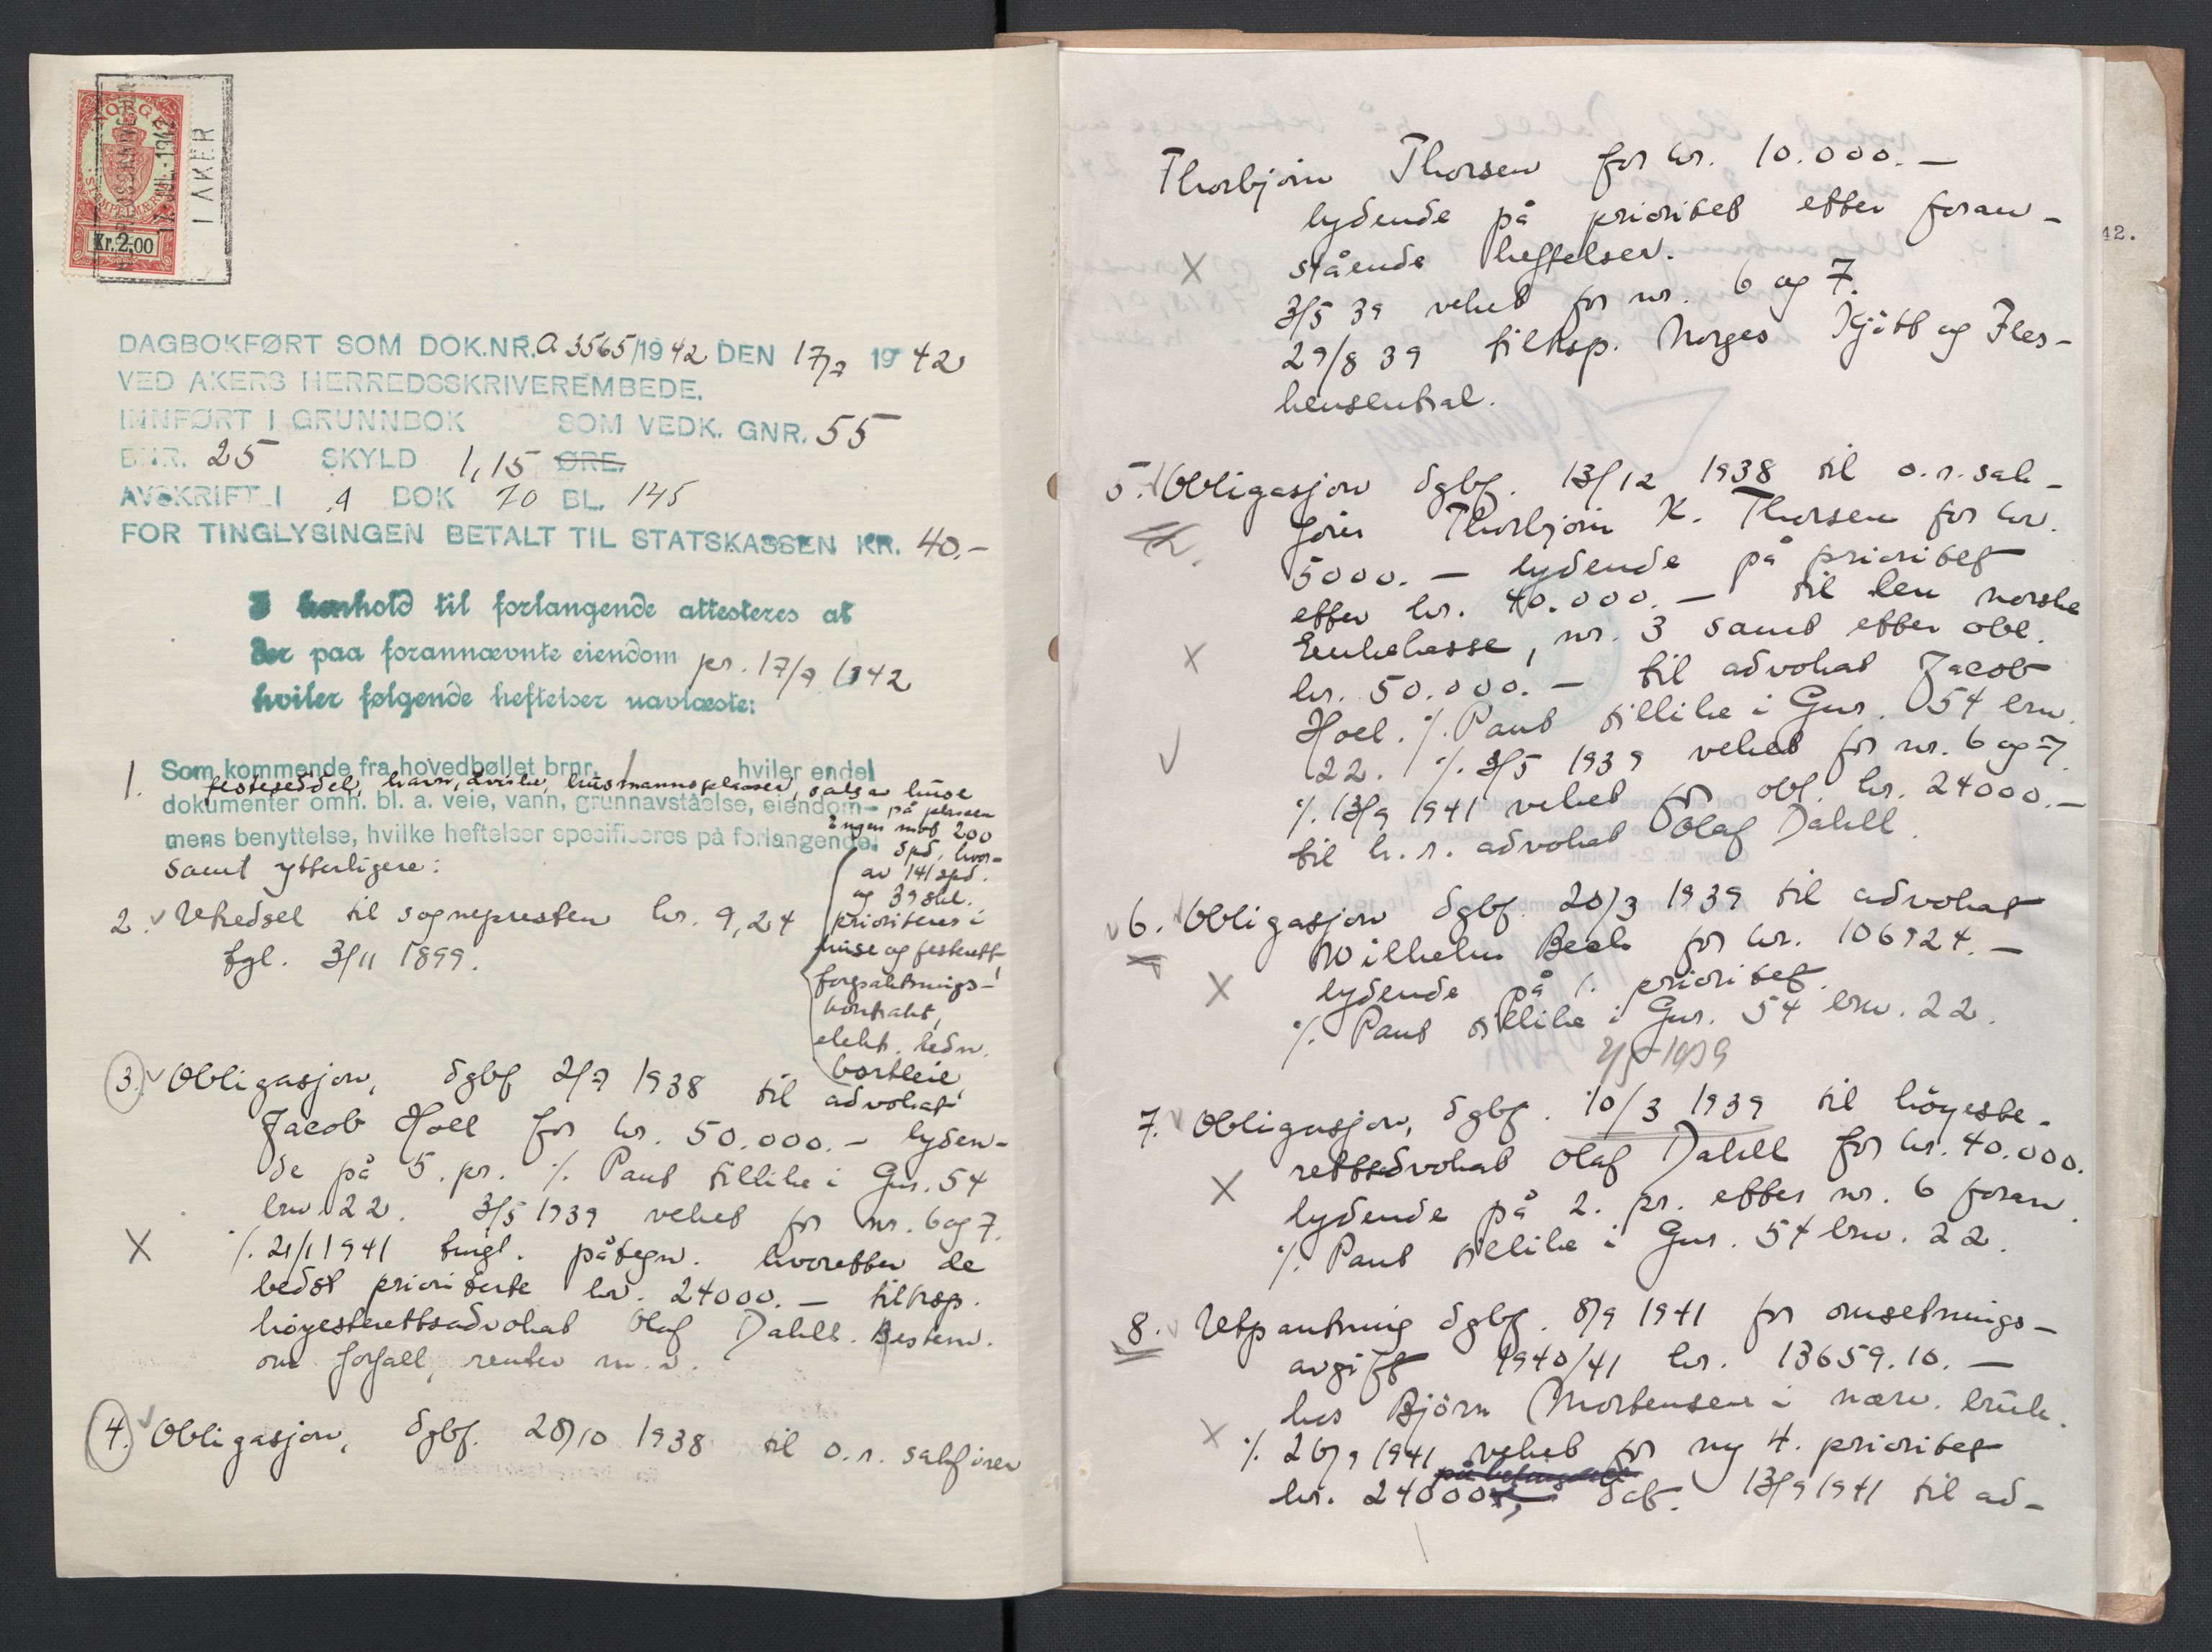 NORGE
STEMPELMÆRKE
Kr. 2,00
17.JUL.1942
I AKER
DAGBOKFØRT SOM DOK.NR. A 3565/1942 DEN 17/7 1942
VED AKERS HERREDSSKRIVEREMBEDE.
INNFØRT I GRUNNBOK SOM VEDK. GNR. 55
BNR. 25 SKYLD 1,15 ØRE.
AVSKRIFT I A BOK 70 BL. 145
FOR TINGLYSINGEN BETALT TIL STATSKASSEN KR. 40.-
I henhold til forlangende attesteres at
der paa forannævnte eiendom pr. 17/7 1942
hviler følgende heftelser uavlæste:
1. Som kommende fra hovedbøllet brnr. 1 hviler endel
festeseddel, havn, husmannsplasser, salg av huse
dokumenter omh. bl. a. veie, vann, grunnavståelse, eiendom-
på plassen
Engen mot 200
mens benyttelse, hvilke heftelser spesifiseres på forlangende.
spd. hvor-
samt ytterligere:
av 141 spd.
og 39 skl.
prioriteres i
huse og festerett
forpaktnings-
kontrakt,
elekt. ledn.
bortleie
2. Utkedsel til sognepresten kr. 9,24
tgl. 3/11 1899.
3. Obligasjon, dgbf 2/7 1938 til advokat
Jacob Hoel for kr. 50.000.- lyden-
de på 5. pr. ·/. Pant tillike i Gnr. 54
brn 22. 3/5 1939 veket for nr. 6 og 7.
X ·/. 21/1 1941 tingl. påtegn. hvoretter de
bedst prioriterte kr. 24000.- tiltrsp.
høyesterettsadvokat Olaf Dahll. Bestem.
om forfall, renter m.v.
4. Obligasjon, dgbf. 28/10 1938 til o.r. sakfører
Thorbjørn Thorsen for kr. 10.000.-
lydende på prioritet etter foran-
X stående heftelser.
3/5 39 veket for nr. 6 og 7.
29/8 39 tiltrsp. Norges Kjött og Fles-
kesentral.
5. Obligasjon dgbf. 13/12 1938 til o.r. sak-
fører Thorbjørn K. Thorsen for kr.
5000.- lydende på prioritet
etter kr. 40.000.- til den norske
X Enkekasse, nr. 3 samt etter obl.
kr. 50.000.- til advokat Jacob
Hoel. ·/. Pant tillike i Gnr. 54 brn.
22. ·/. 3/5 1939 veket for nr. 6 og 7.
·/. 13/9 1941 veket for obl. kr. 24000.-
til h.r. advokat Olaf Dahll.
6. Obligasjon dgbf. 20/3 1939 til advokat
Wilhelm Beck for kr. 106924.-
X lydende på 1. prioritet.
·/. Pant tillike i Gnr. 54 brn. 22.
2/5-1939
7. Obligasjon, dgbf. 10/3 1939 til høyeste-
rettsadvokat Olaf Dahll for kr. 40.000.
X lydende på 2. pr. efter nr. 6 foran.
·/. Pant tillike i Gnr. 54 brn. 22.
8. Utpantning dgbf. 8/9 1941 for omsetnings-
avgift 1940/41 kr. 13659.10.-
hos Björn Mortensen i nærv. bruk.
X ·/. 26/9 1941 veket for ny 4. prioritet
kr. 24000 dat. 13/9 1941 til ad-
42.